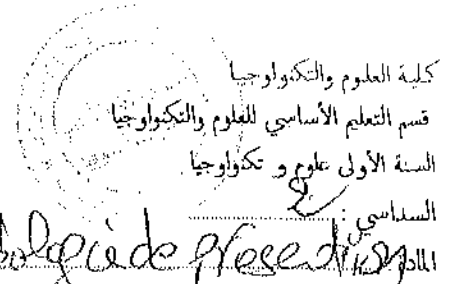 كلية العلوم والتكنولوجيا
قسم التعليم الأساسي للعلوم والتكنولوجيا
السنة الأولى علوم و تكنولوجيا
السداسي : 2
de présentation